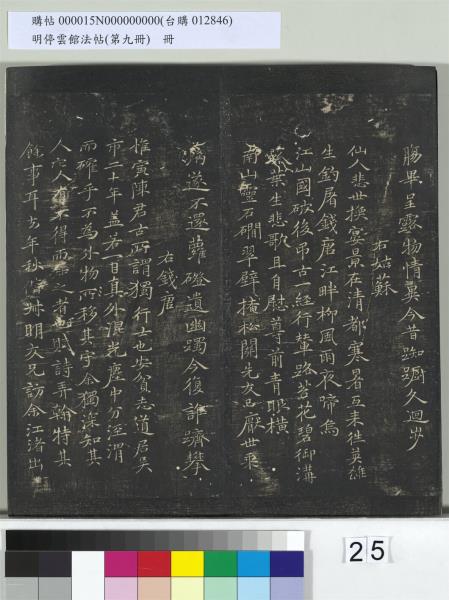 購帖 000015N000000000(台購 012846)
明停雲館法帖(第九冊) 冊
膓畢呈露物情異今昔踟蹰久迴步
右姑蘇
仙人悲世換宴景在清都寒暑互來往英雄
生釣屠錢唐江畔柳風雨夜啼烏
江山國破後弔古一經行輦路苔花碧御溝
葉生悲歌且自慰尊前青眼橫
南山靈石磵翠壁掩松關先友已厭世乘
遂不還蘿磴遺幽躅今復許躋攀
右錢唐
惟寅陳君古所謂獨行士也安貧志道居吳
市二十年蓋若一日其外混光塵中分涇渭
而確乎不為外物所移其字余獨深知其
人它人有不得而者賦詩弄翰特其
餘事耳去年秋明友兄訪余江渚出
25